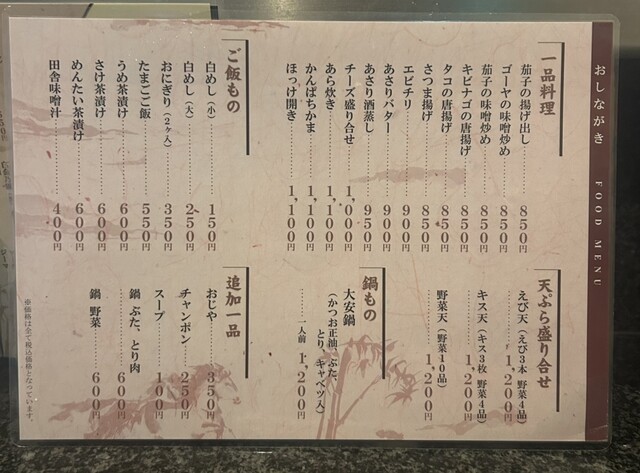 おしながき FOOD MENU
一品料理
茄子の揚げ出し 850円
ゴーヤの味噌炒め 850円
茄子の味噌炒め 850円
キビナゴの唐揚げ 850円
タコの唐揚げ 850円
さつま揚げ 850円
エビチリ 900円
あさりバター 900円
あさり酒蒸し 950円
チーズ盛り合せ 1,000円
あら炊き 1,100円
かんぱちかま 1,100円
ほっけ開き 1,100円
ご飯もの
白めし(小) 150円
白めし(大) 250円
おにぎり(2ヶ入) 350円
たまごご飯 550円
うめ茶漬け 600円
さけ茶漬け 600円
めんたい茶漬け 600円
田舎味噌汁 400円
天ぷら盛り合せ
えび天(えび3本 野菜4品) 1,200円
キス天(キス3枚 野菜4品) 1,200円
野菜天(野菜10品) 1,200円
鍋もの
大安鍋
(かつお正油、ぶた、
とり、キャベツ入)
一人前 1,200円
追加一品
おじや 350円
チャンポン 250円
スープ 100円
鍋 ぶた、とり肉 600円
鍋 野菜 600円
※価格は全て税込価格となっています。